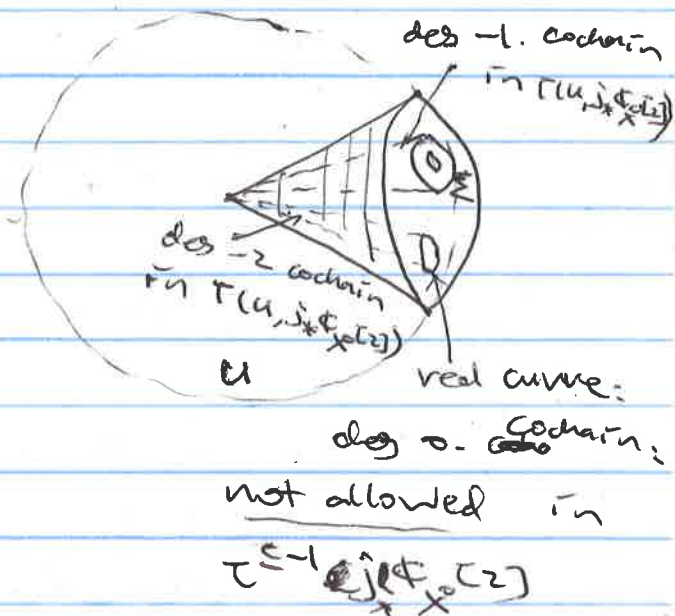 deg -1. cochain
in Γ(U, j_* ℂ_{X°}[2])
deg -2 cochain
in Γ(U, j_* ℂ_{X°}[2])
U
real curve:
deg 0. cochain:
not allowed in
τ^{≤-1} j_* ℂ_{X°}[2]